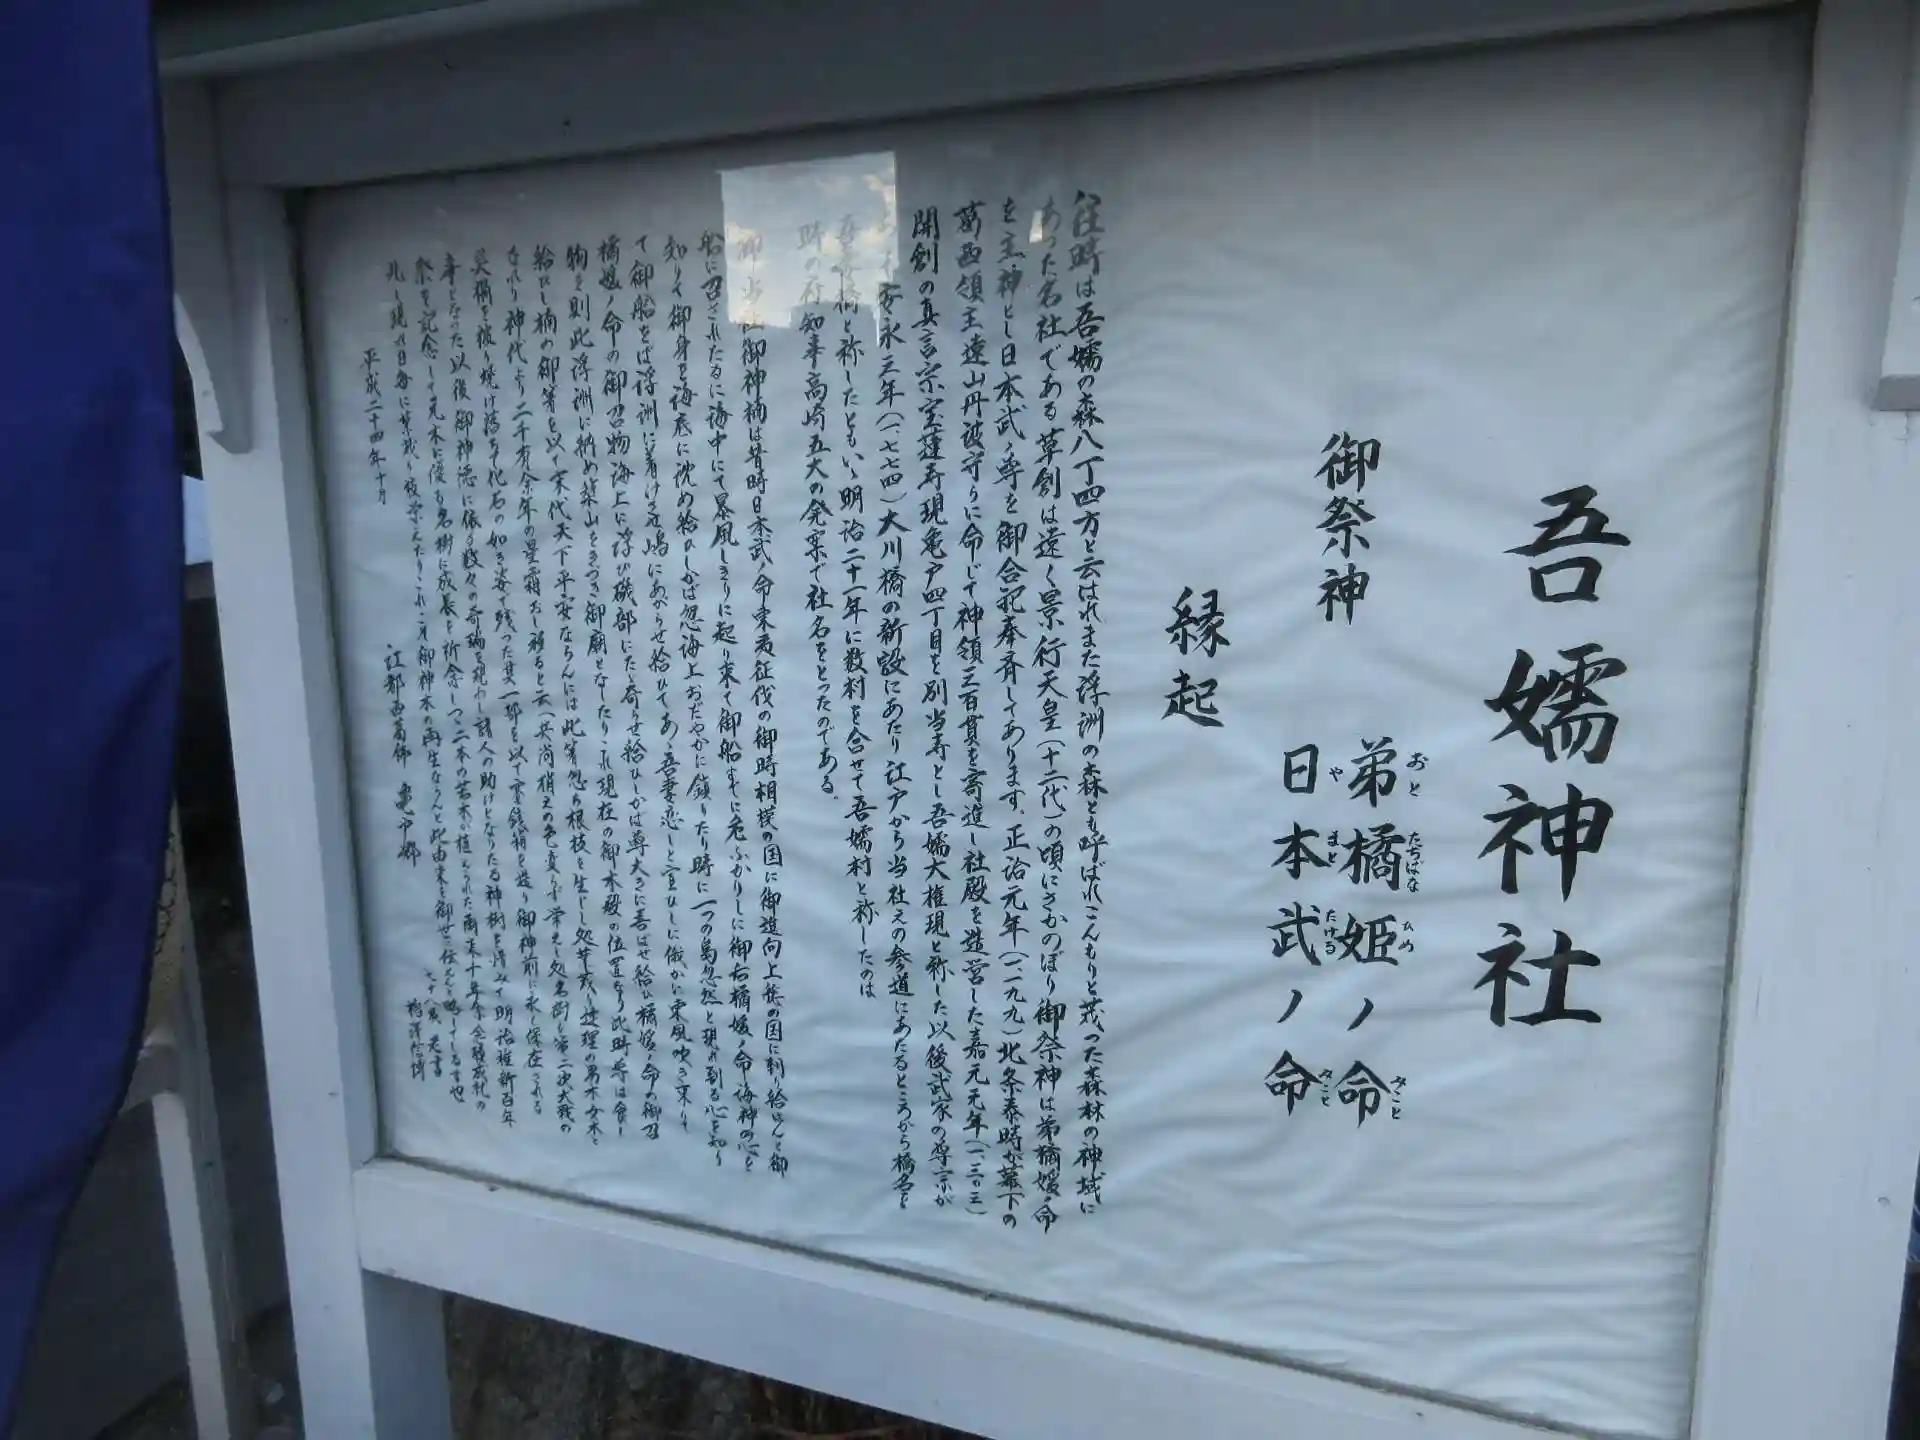 吾嬬神社
御祭神
弟橘姫ノ命
おと たちばな ひめ みこと
日本武ノ命
やまと たける みこと
縁起
往時は吾嬬の森八丁四方と云はれまた浮洲の森とも呼ばれこんもりと茂った森林の神域に
あった名社である草創は遠く景行天皇(十二代)の頃にさかのぼり御祭神は弟橘媛ノ命
を主神とし日本武ノ尊を御合祀奉斉してあります。正治元年(一一九九)北条泰時が幕下の
葛西領主遠山丹波守りに命じて神領三百貫を寄進し社殿を造営した嘉元元年(一、三〇三)
開創の真言宗宝蓮寿現亀戸四丁目を別当寿とし吾嬬大権現と称した以後武家の尊宗が
安永三年(一、七七四)大川橋の新設にあたり江戸から当社えの参道にあたるところから橋名を
吾妻橋と称したともいゝ明治二十一年に数村を合せて吾嬬村と称したのは
時の府知事高崎五六の発案で社名をとったのである。
御神楠は昔時日本武ノ命東夷征伐の御時相模の国に御造向上総の国に到り給はんと御
船に召されたるに海中にて暴風しきりに起り来て御船すでに危ふかりしに御右橘媛ノ命海神の心を
知りて御身を海底に沈め給ひしかば忽海上おだやかに鎮りたり時に一つの島忽然と現れ到る心を知り
て御船をば浮洲に着けさせ嶋にあからせ給ひてあゝ吾妻恋しと宣ひしに俄かに東風吹き来りて
橘媛ノ命の御召物海上に浮び磯部にたゞ寄らせ給ひしかば尊大きに喜ばせ給ひ橘媛ノ命の御召
物を則此浮洲に納め築山をきづき御廟となしたりこれ現在の御本殿の位置なり此時尊は食し
給ひし楠の御箸を以て末代天下平安ならんには此箸忽ち根枝を生じし処昇茂り連理の男木女木と
なれり神代より二千有余年の星霜おし移ると云(共尚梢えの色変らず栄えし処名樹も第二次大戦の
災禍を被り焼け落ちて化石の如き姿で残った其一部を以て宝銭箱を造り御神前に永く保存される
事となった以後御神徳に依る数々の奇瑞を現わし諸人の助けとなりたる神樹を惜みて明治維新百年
祭を記念して元木に優る名樹に成長を祈念しつゝ二本の苗木が植えられた
平成二十四年十月
江都西葛飾 亀市郷
七十八歳 老書